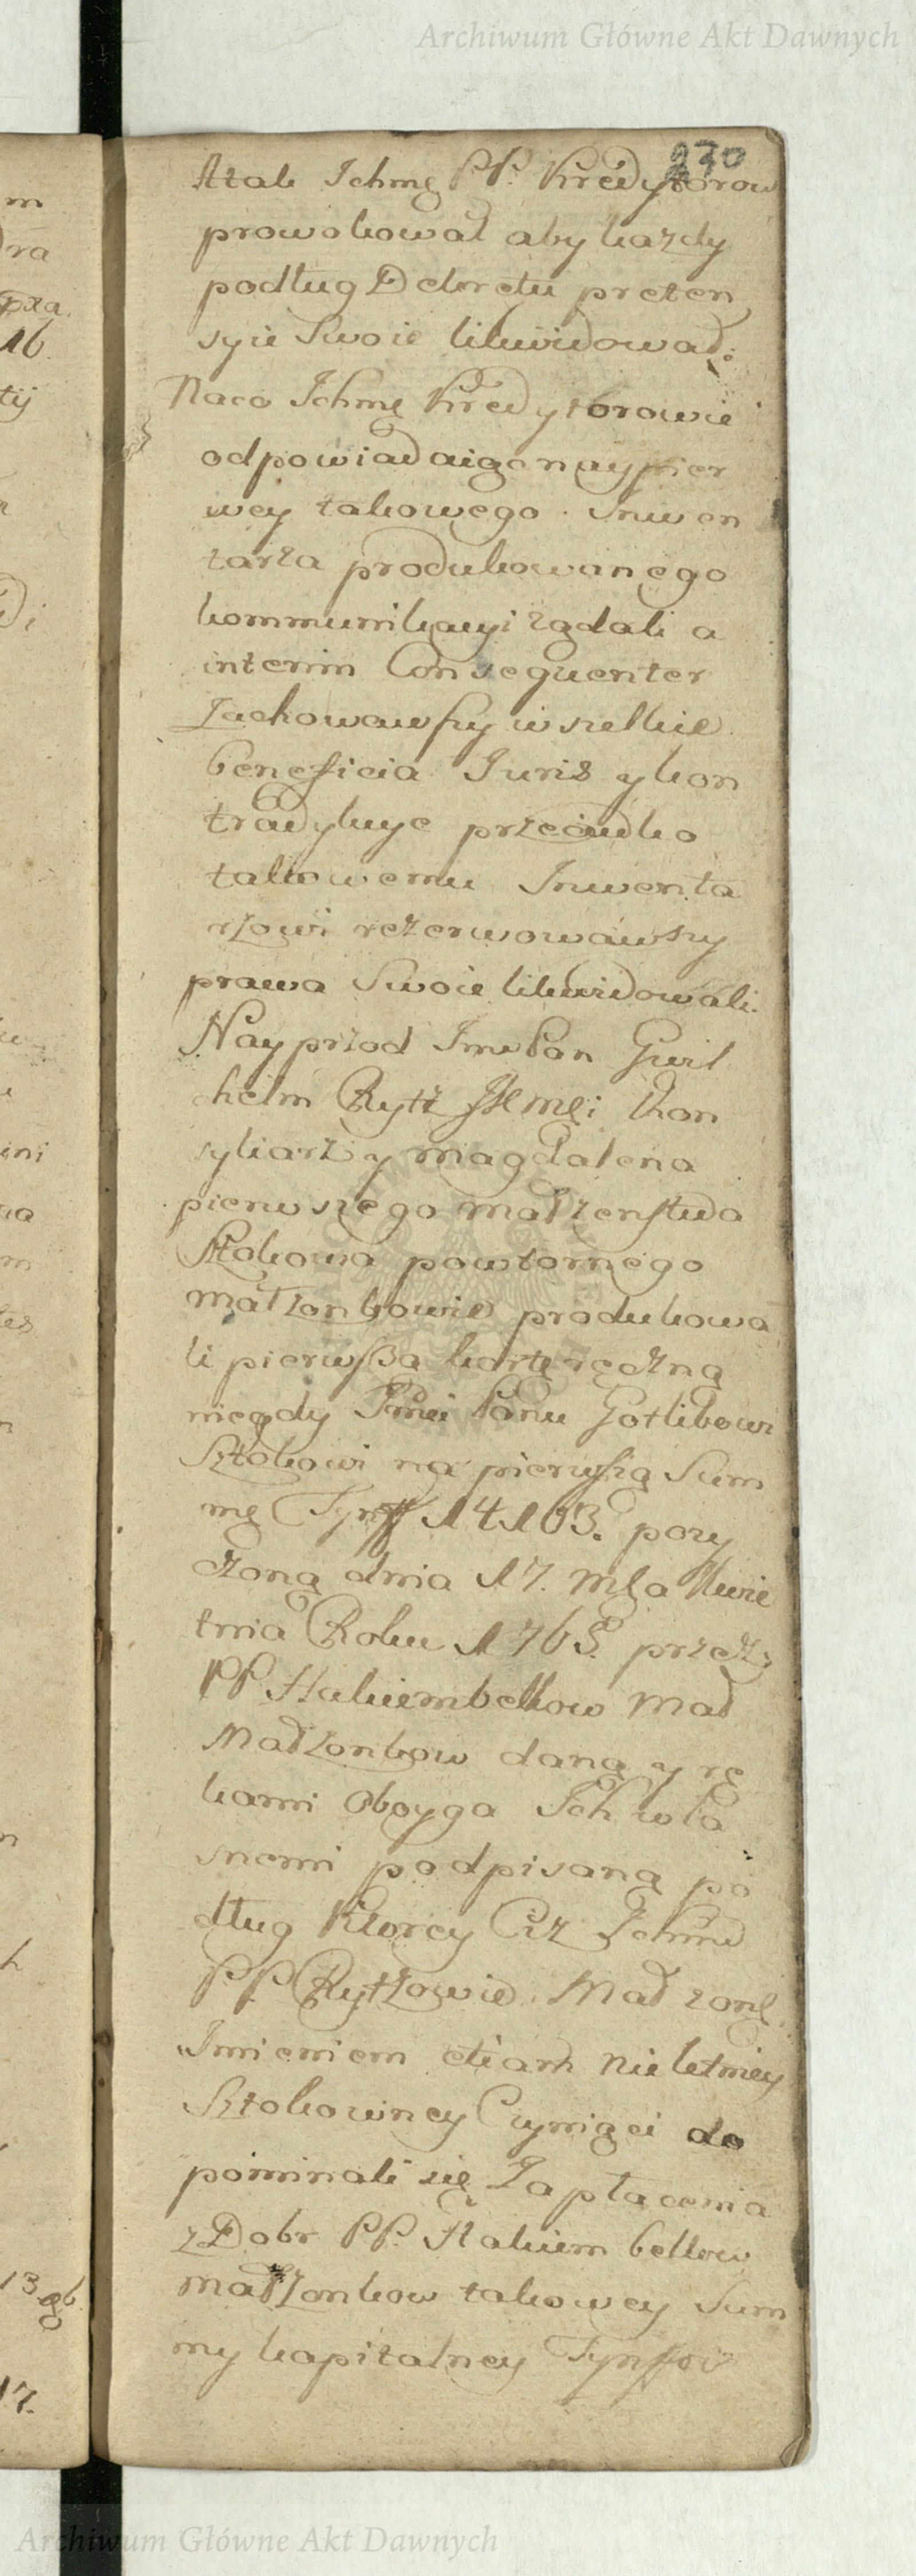 Archiwum Główne Akt Dawnych
270
Atak Ichmę PP. Kredytorow
prowokował aby każdy
podług Dekretu preten
syie Swoie likwidował:
Naco Ichmę Kredytorowie
odpowiadaiąc naypier
wey takowego Inwen
tarza produkowanego
kommunikacyi żądali a
interim Consequenter
Zachowawszy wszelkie
beneficia Juris y kon
tradykcye przeciwko
takowemu Inwenta
rzowi rezerwowawszy
prawa Swoie likwidowali.
Nayprzod Imć Pan Gwil
helm Rytz JKMci Kon
syliarz y Magdalena
pierwszego małżenstwa
Sztokowa powtornego
małżonkowie produkowa
li pierwszą kartę ręczną
niegdy Imci Panu Gotlibowi
Sztokowi na pierwszą Sum
mę Tynff 14163. poży
czoną dnia 17. Mca Kwie
tnia Roku 1765. przez
PP Hakiembekow Mał
Małżonkow daną y rę
kami Oboyga Ich wła
snemi podpisaną po
dług Ktorey Ciż Ichmć
PP Rytzowie Mał żonę
Imieniem etiam Nieletniey
Sztokowney Czyniąci do
pominali się Zapłacenia
z Dobr PP. Hakiem bekow
małżonkow takowey Sum
my kapitalney Tynffow
m
ra
16.
tij
ini
m
n
h
13
17.
Archiwum Główne Akt Dawnych